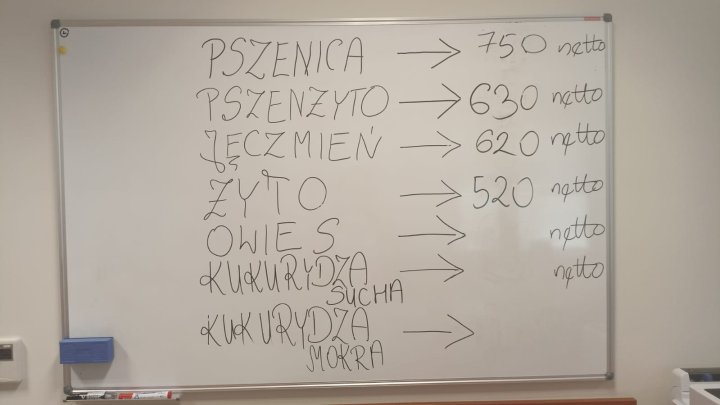 PSZENICA → 750 netto
PSZENŻYTO → 630 netto
JĘCZMIEŃ → 620 netto
ŻYTO → 520 netto
OWIES → netto
KUKURYDZA SUCHA → netto
KUKURYDZA MOKRA →